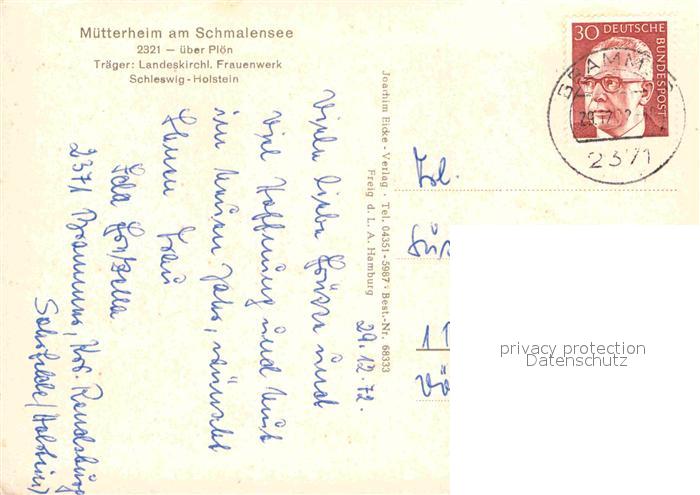 Mütterheim am Schmalensee
2321 – über Plön
Träger: Landeskirchl. Frauenwerk
Schleswig-Holstein
30 DEUTSCHE
BUNDESPOST
BRAMM
29.12.
2371
Joachim Eicke - Verlag · Tel. 04351-5987 · Best.-Nr. 68333
Freig d. L. A. Hamburg
29.12.72.
Viele liebe Grüsse und
viel Hoffnung und Mut
im neuen Jahr, wünscht
Ihnen Frau
2371 Brammer, Krs. Rendsburg
(Holstein)
Frl.
11
privacy protection
Datenschutz